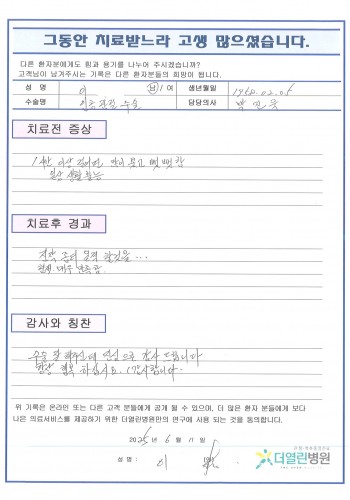 그동안 치료받느라 고생 많으셨습니다.
다른 환자분에게도 힘과 용기를 나누어 주시겠습니까?
고객님이 남겨주시는 기록은 다른 환자분들의 희망이 됩니다.
성 명 이 남 / 여 생년월일
수술명 인공관절 수술 담당의사
치료전 증상
이상 걸어면 뻣뻣함
일상 생활 불능
치료후 경과
진작 좀더 일찍 할것을...
현재 매우 만족함
감사와 칭찬
수술 잘 해주신데 진심으로 감사 드립니다
항상 행복 하십시요. (감사합니다.
위 기록은 온라인 또는 다른 고객 분들에게 공개 될 수 있으며, 더 많은 환자 분들에게 보다
나은 의료서비스를 제공하기 위한 더열린병원만의 연구에 사용 되는 것을 동의합니다.
2025년 6월 11일
성 명 : 이
더열린병원